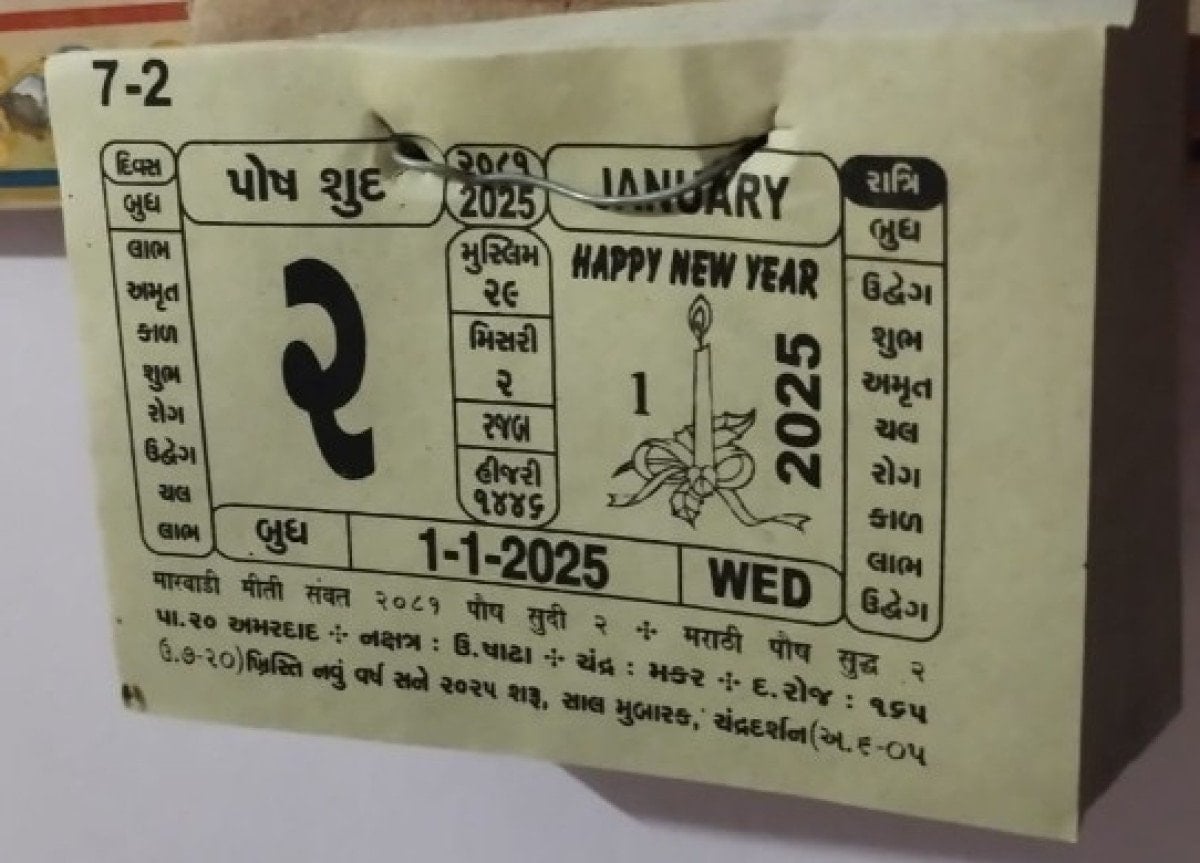 7-2
દિવસ
બુધ
લાભ
અમૃત
કાળ
શુભ
રોગ
ઉદ્વેગ
ચલ
લાભ
પોષ શુદ
૨
૨૦૮૧
2025
મુસ્લિમ
૨૯
મિસરી
૨
રજબ
હીજરી
૧૪૪૬
JANUARY
HAPPY NEW YEAR
1
2025
રાત્રિ
બુધ
ઉદ્વેગ
શુભ
અમૃત
ચલ
રોગ
કાળ
લાભ
ઉદ્વેગ
બુધ 1-1-2025 WED
मारवाडी मीती संवत २०८१ पौष सुदी २ ÷ मराठी पौष सुद्ध २
પા.૨૦ અમરદાદ ÷ નક્ષત્ર : ઉ.ષાઢા ÷ ચંદ્ર : મકર ÷ દ.રોજ : ૧૬૫
ઉ.૭-૨૦)ખ્રિસ્તિ નવું વર્ષ સને ૨૦૨૫ શરૂ, સાલ મુબારક, ચંદ્રદર્શન(અ.૬-૦૫